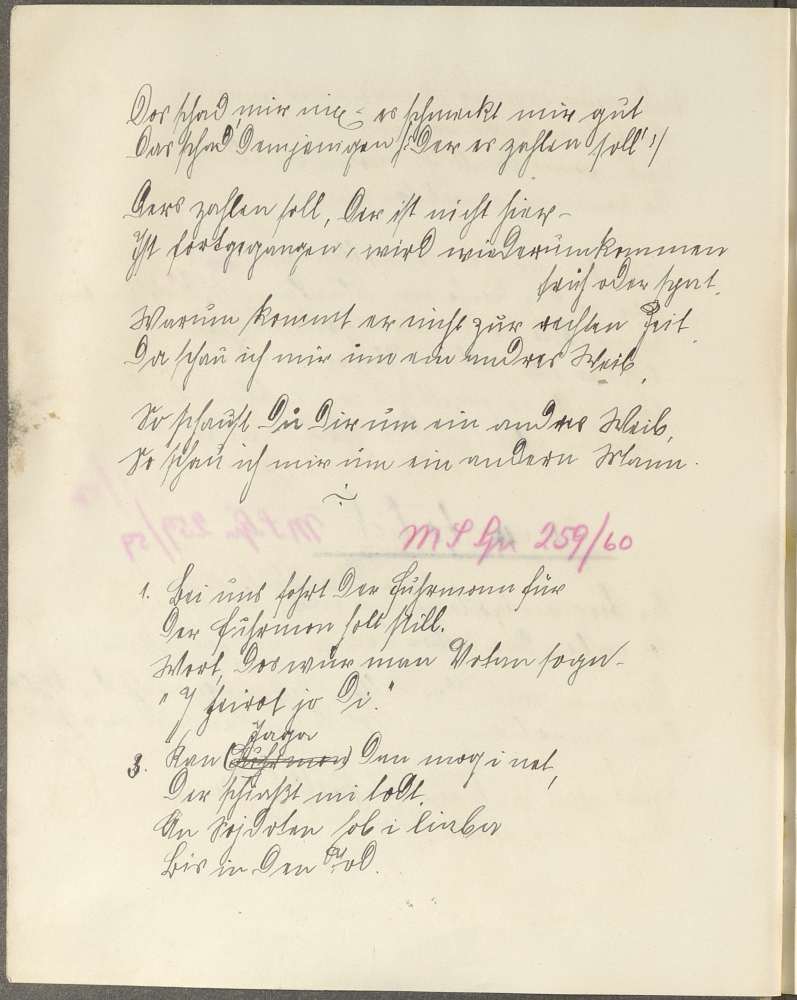 Dos schad mir nix - es schmeckt mir gut
Das schad Demjenigen /: Der es zahlen soll :/
Ders zahlen soll, Der ist nicht hier -
Ist fortgegangen, wird wiederumkommen
früh oder spat.
Warum kommt er nicht zur rechten Zeit
Da schau ich mir um ein andres Weib,
So schaust Du Dir um ein andres Weib,
So schau ich mir um ein andern Mann.
MS Gr 259/60
1. Bei uns fohrt Der Fuhrmonn für
Der Fuhrmon holt still.
Wort, Dos wür man Voton sogn -
"I heirot jo Di."
Jaga
3. Kan (Fuhrmon) Den mog i net,
Der schiaßt mi todt.
An Sojdoten hob i liaba
Bis in Den Tod.